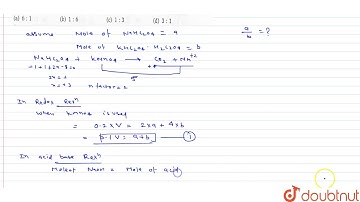 (a) 6 : 1 (b) 1 : 6 (c) 1 : 3 (d) 3 : 1
assume Mole of NaHC2O4 = a
a/b = ?
Mole of KHC2O4·H2C2O4 = b
NaHC2O4 + KMnO4 → CO2 + Mn+2
= 1+1+2x-8=0
2x=6
x=+3 n factor=2
5
In Redox Rexn
When KMnO4 is used
= 0.2×V = 2×a + 4×b
= 0.1V = a+b —①
In acid base Rexn
Mole of NaOH = Mole of acid
doubtnut